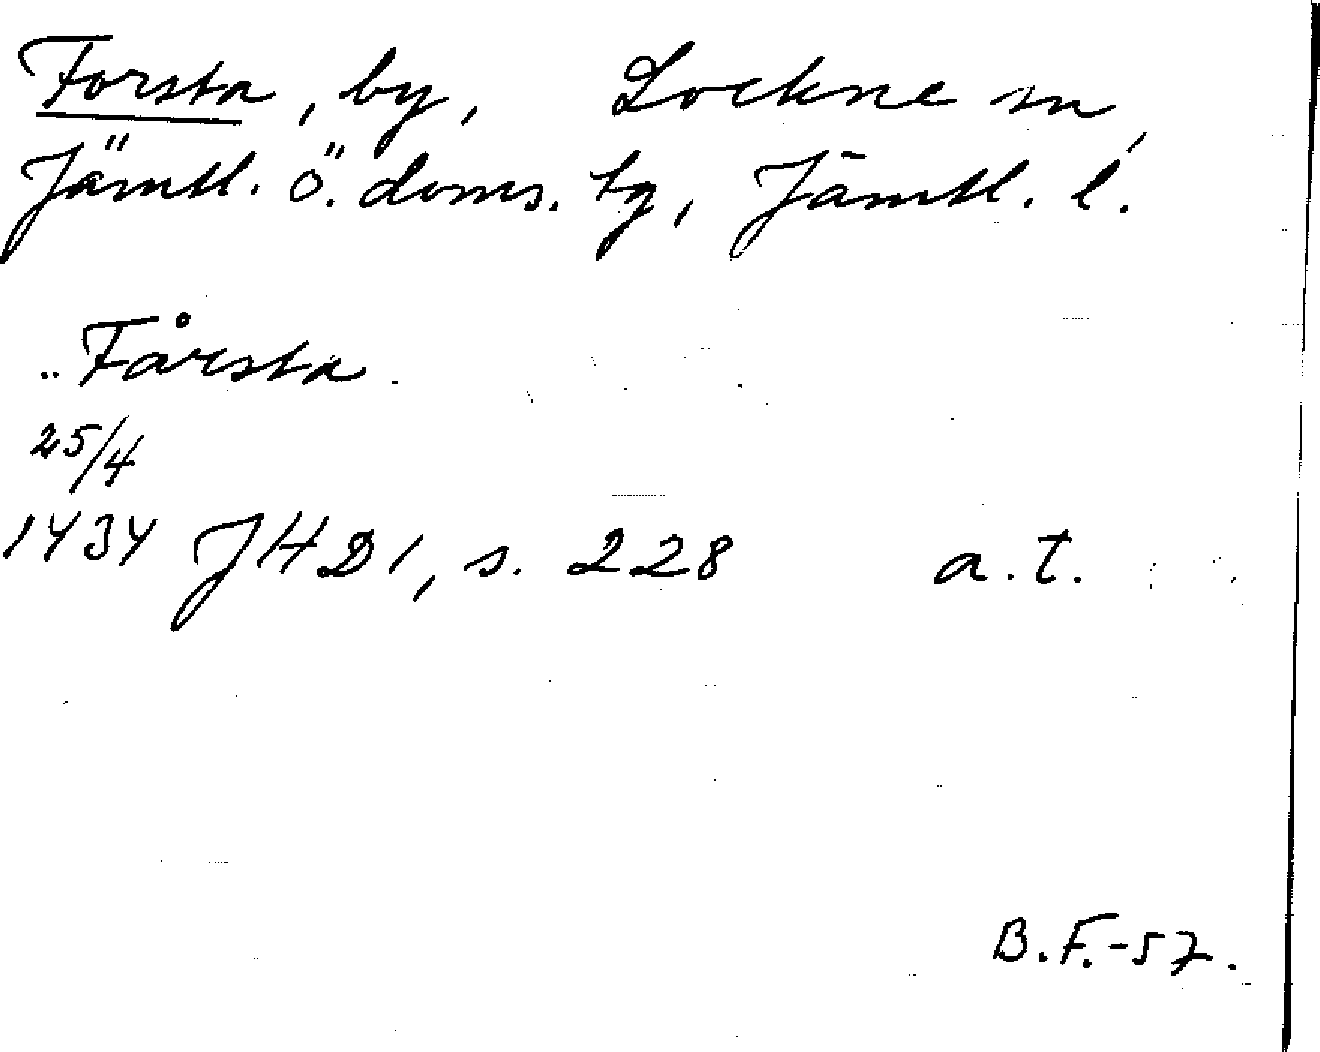 Forsta, by, Lockne sn,
Jämtl. ö. doms. tg, Jämtl. l.
.. Fårsta
25/4
1434 JHD1, s. 228 a.t.
B.F.-57.